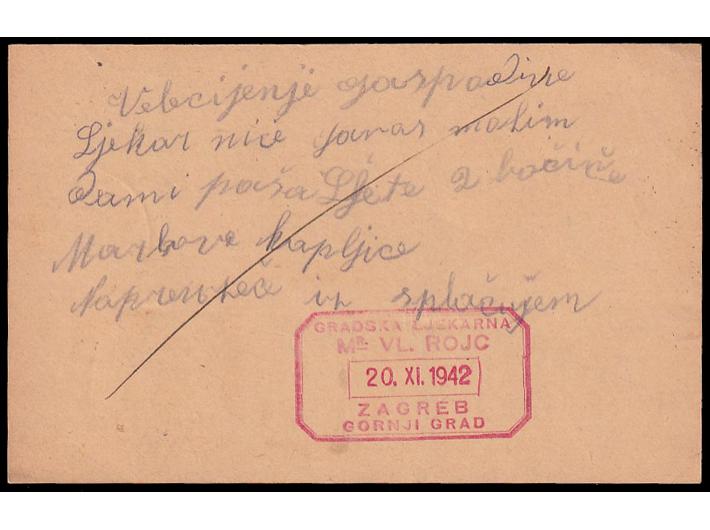 Velecijenje gospodine
Ljekar niće javas molim
dami paša Ljéte 2 bočiče
Marbove kapljice
Naprenteče in splačujem
GRADSKA LJEKARNA
MR. VL. ROJC
20. XI. 1942
ZAGREB
GORNJI GRAD